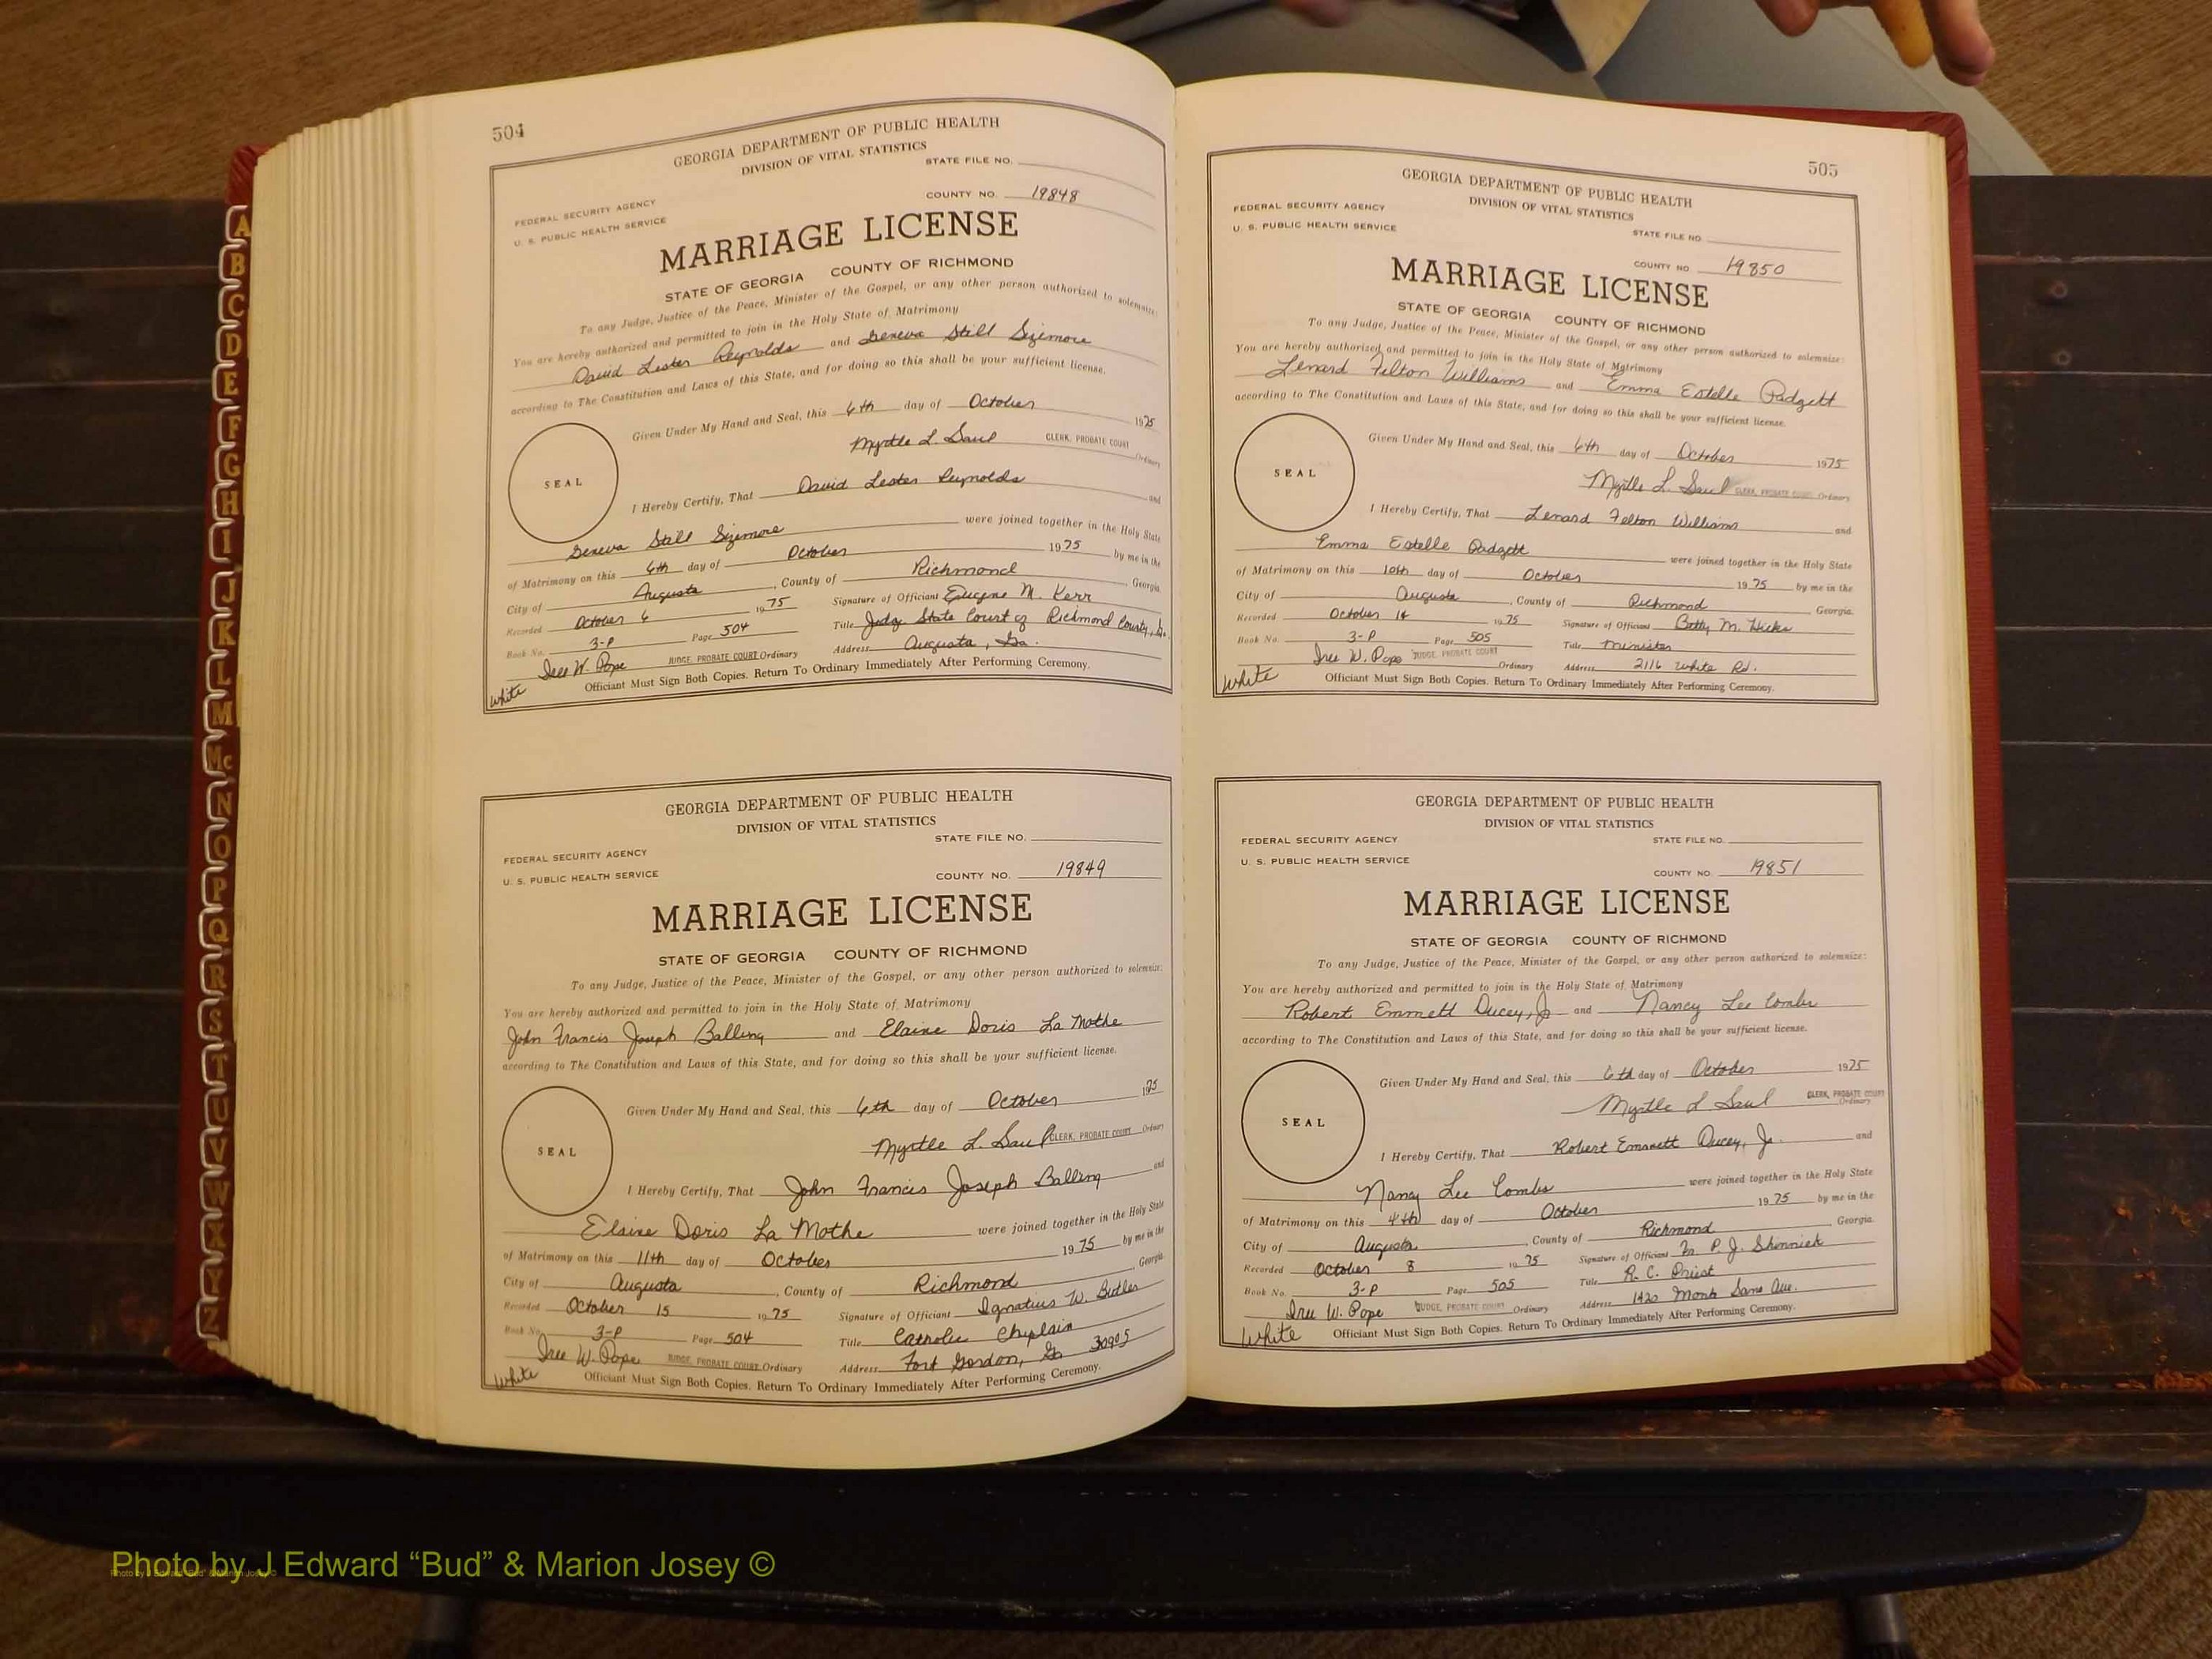 504
GEORGIA DEPARTMENT OF PUBLIC HEALTH
DIVISION OF VITAL STATISTICS
STATE FILE NO.
FEDERAL SECURITY AGENCY
COUNTY NO. 19848
U. S. PUBLIC HEALTH SERVICE
MARRIAGE LICENSE
STATE OF GEORGIA COUNTY OF RICHMOND
To any Judge, Justice of the Peace, Minister of the Gospel, or any other person authorized to solemnize:
You are hereby authorized and permitted to join in the Holy State of Matrimony
David Lester Reynolds and Geneva Still Sizemore
according to The Constitution and Laws of this State, and for doing so this shall be your sufficient license.
Given Under My Hand and Seal, this 6th day of October 1975
Myrtle L. Saul CLERK, PROBATE COURT Ordinary
SEAL
I Hereby Certify, That David Lester Reynolds and
Geneva Still Sizemore were joined together in the Holy State
of Matrimony on this 6th day of October 1975 by me in the
City of Augusta, County of Richmond, Georgia
Recorded October 6 1975 Signature of Officiant Eugene M. Kerr
Book No. 3-P Page 504 Title Judge State Court of Richmond County, Ga.
Iree W. Pope JUDGE, PROBATE COURT Ordinary Address Augusta, Ga.
White Officiant Must Sign Both Copies. Return To Ordinary Immediately After Performing Ceremony.
GEORGIA DEPARTMENT OF PUBLIC HEALTH
DIVISION OF VITAL STATISTICS
STATE FILE NO.
FEDERAL SECURITY AGENCY
U. S. PUBLIC HEALTH SERVICE
COUNTY NO. 19849
MARRIAGE LICENSE
STATE OF GEORGIA COUNTY OF RICHMOND
To any Judge, Justice of the Peace, Minister of the Gospel, or any other person authorized to solemnize:
You are hereby authorized and permitted to join in the Holy State of Matrimony
John Francis Joseph Balling and Elaine Doris La Mothe
according to The Constitution and Laws of this State, and for doing so this shall be your sufficient license.
Given Under My Hand and Seal, this 6th day of October 1975
Myrtle L. Saul CLERK, PROBATE COURT Ordinary
SEAL
I Hereby Certify, That John Francis Joseph Balling and
Elaine Doris La Mothe were joined together in the Holy State
of Matrimony on this 11th day of October 1975 by me in the
City of Augusta, County of Richmond Georgia
Recorded October 15 1975 Signature of Officiant Ignatius W. Butler
Book No. 3-P Page 504 Title Catholic Chaplain
Iree W. Pope JUDGE, PROBATE COURT Ordinary Address Fort Gordon, Ga 30905
White Officiant Must Sign Both Copies. Return To Ordinary Immediately After Performing Ceremony.
505
GEORGIA DEPARTMENT OF PUBLIC HEALTH
DIVISION OF VITAL STATISTICS
FEDERAL SECURITY AGENCY
U. S. PUBLIC HEALTH SERVICE
STATE FILE NO
COUNTY NO 19850
MARRIAGE LICENSE
STATE OF GEORGIA COUNTY OF RICHMOND
To any Judge, Justice of the Peace, Minister of the Gospel, or any other person authorized to solemnize:
You are hereby authorized and permitted to join in the Holy State of Matrimony
Lenard Felton Williams and Emma Estelle Padgett
according to The Constitution and Laws of this State, and for doing so this shall be your sufficient license.
Given Under My Hand and Seal, this 6th day of October 1975
Myrtle L. Saul CLERK, PROBATE COURT Ordinary
SEAL
I Hereby Certify, That Lenard Felton Williams and
Emma Estelle Padgett were joined together in the Holy State
of Matrimony on this 10th day of October 1975 by me in the
City of Augusta, County of Richmond, Georgia.
Recorded October 14 1975 Signature of Officiant M. Hicks
Book No. 3-P Page 505 Title Minister
Iree W. Pope JUDGE, PROBATE COURT Ordinary Address 2116 White Rd.
White Officiant Must Sign Both Copies. Return To Ordinary Immediately After Performing Ceremony.
GEORGIA DEPARTMENT OF PUBLIC HEALTH
DIVISION OF VITAL STATISTICS
FEDERAL SECURITY AGENCY
STATE FILE NO.
U. S. PUBLIC HEALTH SERVICE
COUNTY NO. 19851
MARRIAGE LICENSE
STATE OF GEORGIA COUNTY OF RICHMOND
To any Judge, Justice of the Peace, Minister of the Gospel, or any other person authorized to solemnize:
You are hereby authorized and permitted to join in the Holy State of Matrimony
Robert Emmett Ducey, Jr and Nancy Lee Combs
according to The Constitution and Laws of this State, and for doing so this shall be your sufficient license.
Given Under My Hand and Seal, this 6th day of October 1975
Myrtle L Saul CLERK, PROBATE COURT Ordinary
SEAL
I Hereby Certify, That Robert Emmett Ducey, Jr. and
Nancy Lee Combs were joined together in the Holy State
of Matrimony on this day of October 1975 by me in the
City of Augusta, County of Richmond, Georgia.
Recorded October 8 1975 Signature of Officiant P. J. Shinnick
Book No. 3-P Page 505 Title R. C. Priest
Iree W. Pope JUDGE, PROBATE COURT Ordinary Address 1420 Monte Sano Ave.
White Officiant Must Sign Both Copies. Return To Ordinary Immediately After Performing Ceremony.
A
B
C
D
E
F
G
H
I
J
K
L
M
Mc
N
O
P
Q
R
S
T
U
V
W
X
Y
Z
Photo by J Edward “Bud” & Marion Josey ©
Photo by J Edward "Bud" & Marion Josey ©